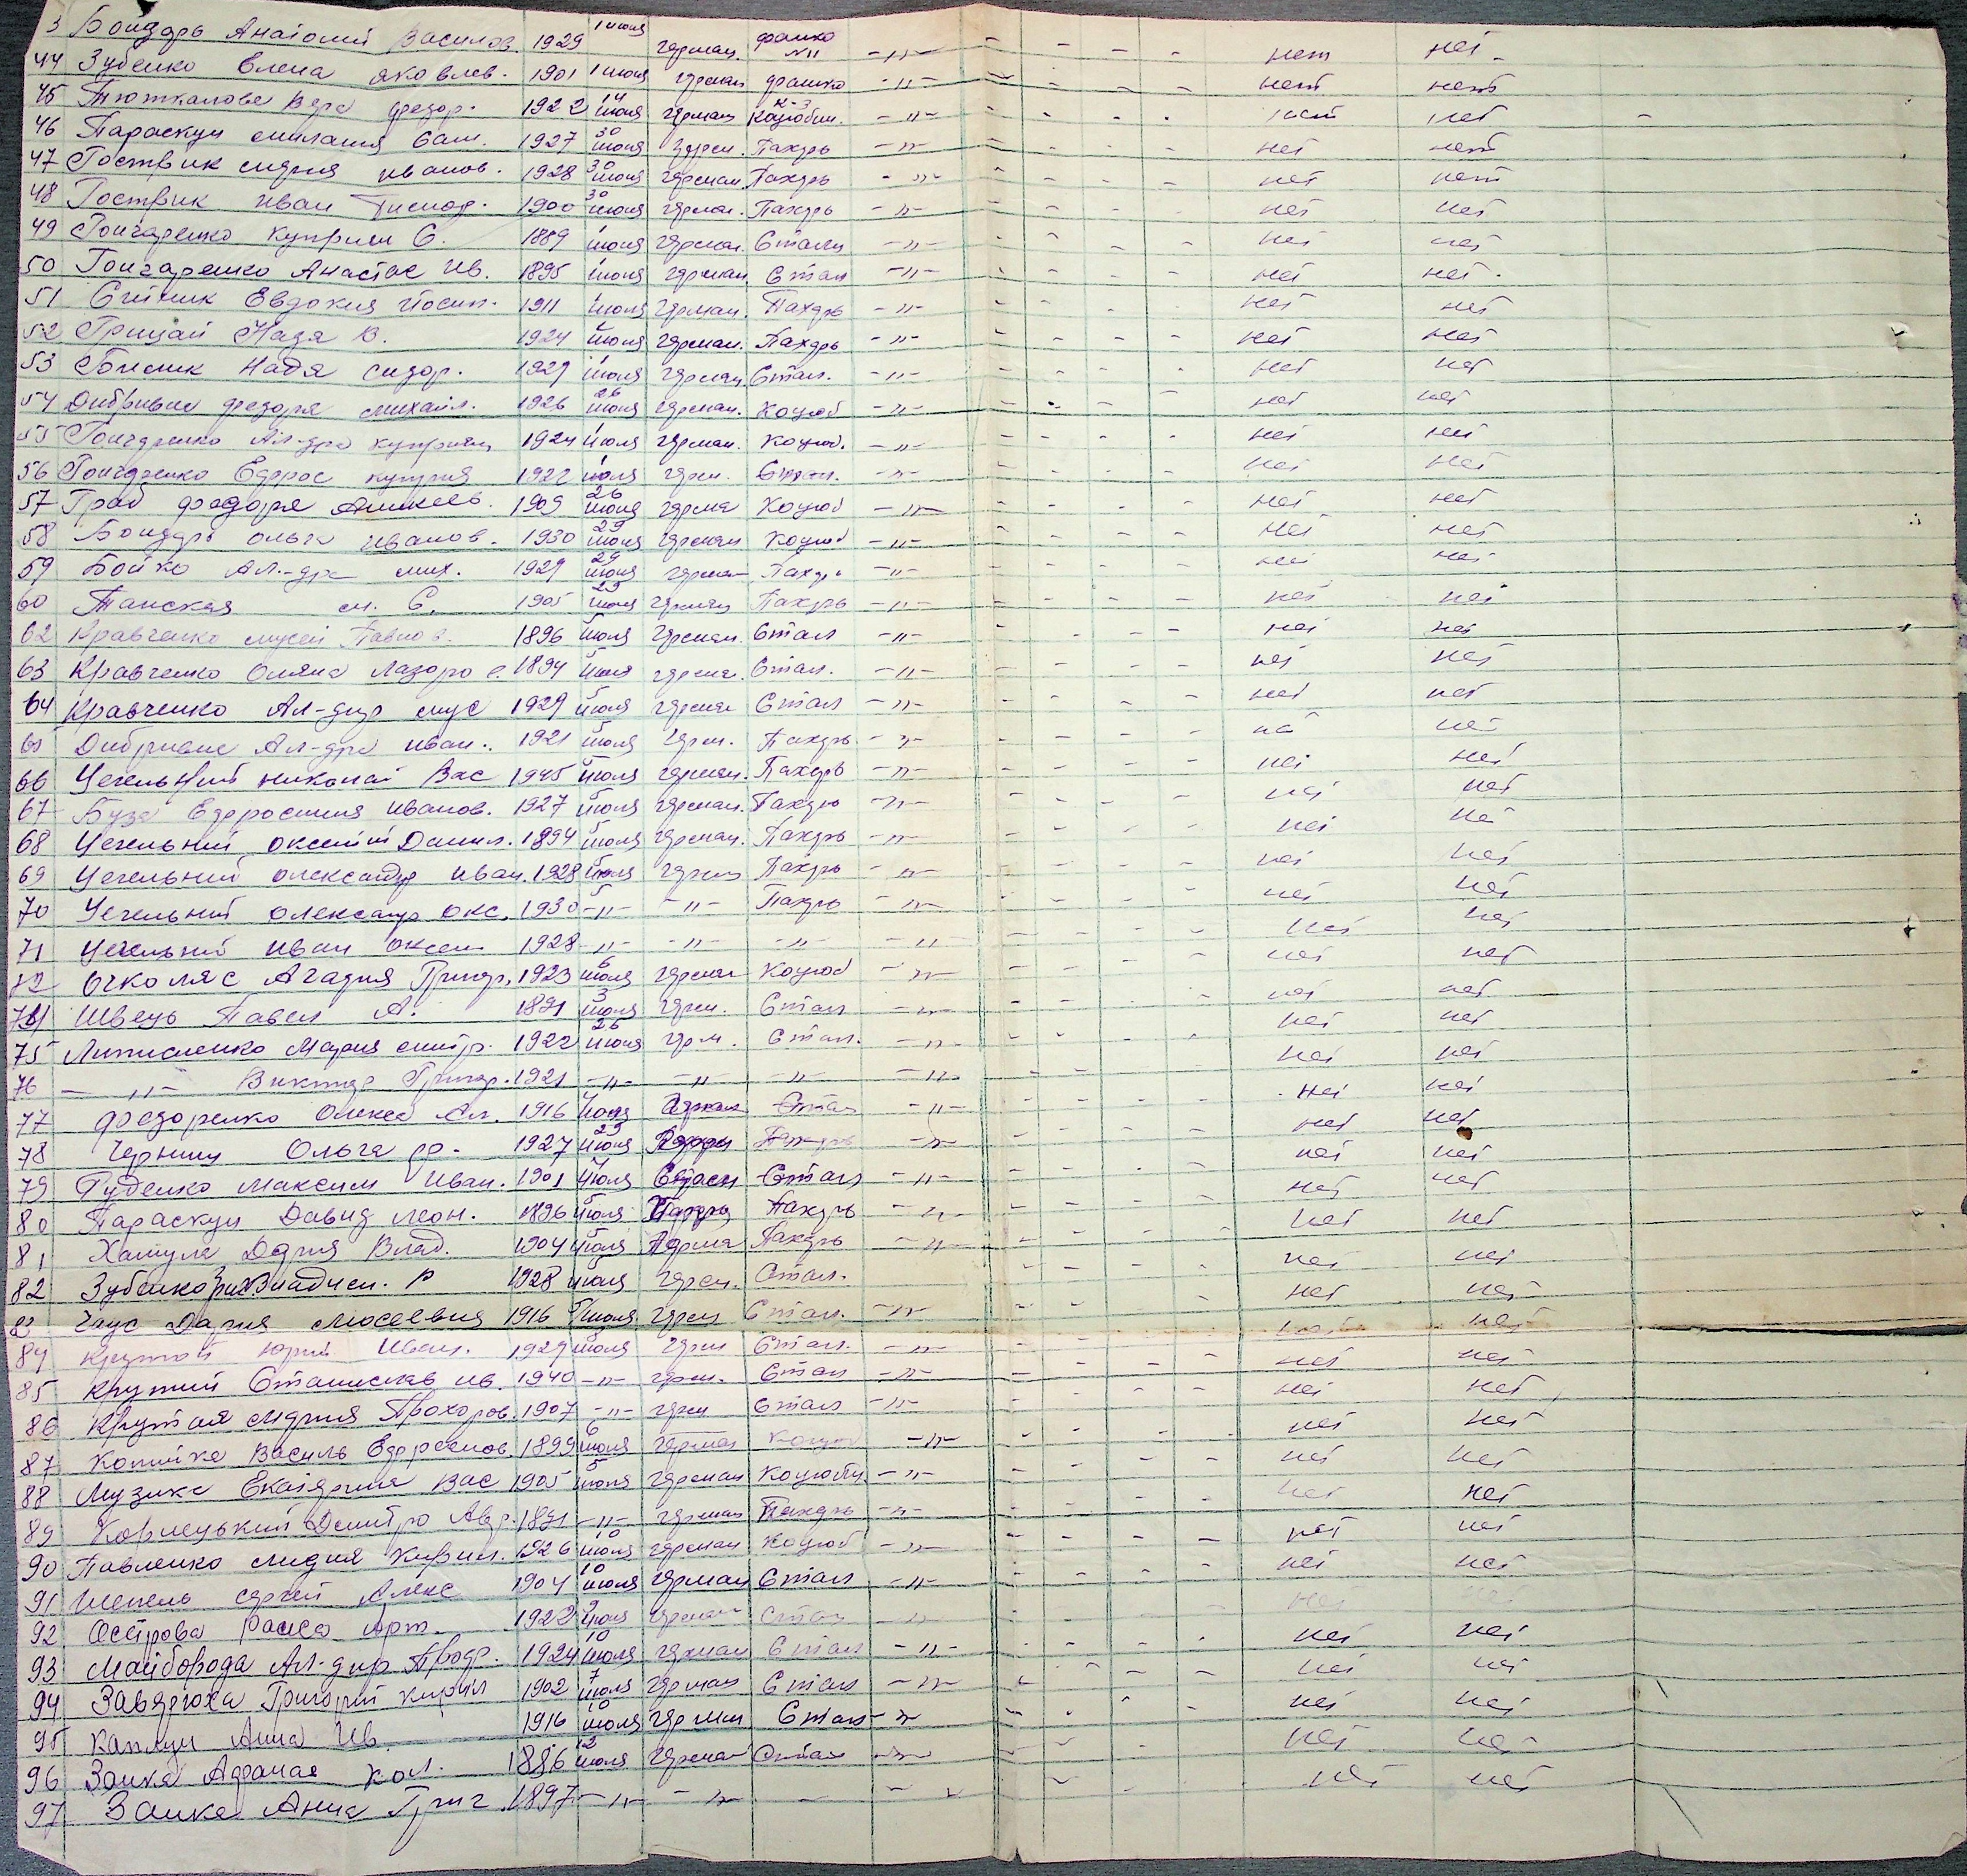 3 Бондарь Анатолий Василов. 1929 1 июля герман. франко N11 -"- - - - - нет нет
44 Зубенко Елена Яковлев. 1901 1 июля герман франко -"- - - - - нет нет
45 Вера федор. 1922 14 июля герман К-з Коцюбин. -"- - - - - нет нет -
46 Параскун 1927 30 июля герм. Пахарь -"- - - - - нет нет
47 Гоствик иванов. 1928 30 июля герман Пахарь -"- - - - - нет нет
48 Гоствик Иван Тимоф. 1900 30 июля герман. Пахарь -"- - - - - нет нет
49 Гончаренко Куприян С. 1889 1 июля герман. Сталин -"- - - - - нет нет
50 Гончаренко Анастас Ив. 1895 1 июля герман. Стал -"- - - - - нет нет.
51 Евдокия Иосип. 1911 1 июля герман. Пахарь -"- - - - нет нет
52 Грицай Надя В. 1924 5 июля герман. Пахарь -"- - - - - нет нет
53 Надя сидор. 1929 1 июля герман. Стал. -"- - - - - нет нет
54 Дибривна федора михайл. 1926 26 июля герман. Коцюб -"- - - - - нет нет
55 Гончаренко Ал-дра куприян 1924 1 июля герман. Коцюб. -"- - - - - нет нет
56 Гончаренко Ефрос куприя 1922 1 июля герм. Стал. -"- - - - - нет нет
57 Граб федора Аликсев. 1909 26 июля герма Коцюб -"- - - - - нет нет
58 Бондарь ольга иванов. 1930 29 июля герман Коцюб -"- - - - - нет нет
59 Бойко Ал-дра мих. 1929 29 июля герман Пахарь -"- - - - - нет нет
60 Танская м. С. 1905 29 июля герман Пахарь -"- - - - - нет нет
62 Кравченко мусей Павлов. 1896 5 июля герман. Стал -"- - - - - нет нет
63 Кравченко Оляна Лазоров. 1894 5 июля герман. Стал. -"- - - - - нет нет
64 Кравченко Ал-дир мус 1929 5 июля герман Стал -"- - - - - нет нет
65 Дибривна Ал-дра иван. 1921 5 июля герм. Пахарь -"- - - - - нет нет
66 Чечельний николай Вас 1945 5 июля герман. Пахарь -"- - - - - нет нет
67 Буза Ефросиния иванов. 1927 5 июля герман. Пахарь -"- - - - - нет нет
68 Чечельний оксентий Данил. 1894 5 июля герман. Пахарь -"- - - - - нет нет
69 Чечельний олександр иван. 1928 5 июля герман Пахарь -"- - - - - нет нет
70 Чечельний олександр окс. 1930 -"- -"- Пахарь -"- - - - - нет нет
71 Чечельний иван оксен 1928 -"- -"- -"- -"- - - - - нет нет
72 Очколяс Агафия Григор. 1923 6 июля герман Коцюб -"- - - - - нет нет
74 Швець Павел А. 1891 3 июля герм. Стал -"- - - - - нет нет
75 Мария дмитр. 1922 26 июля герм. Стал. -"- - - - - нет нет
76 -"- Виктор Григор. 1921 -"- -"- -"- -"- - - - - нет нет
77 федоренко Олекса Ал. 1916 4 июля Герман Стал -"- - - - - нет нет
78 Ольга ф. 1927 29 июля Пахарь -"- - - - - нет нет
79 Гуденко Максим Иван. 1901 4 июля Стал -"- - - - - нет нет
80 Параскун Давид леон. 1896 5 июля Пахарь -"- - - - - нет нет
81 Хамула Дария Влад. 1904 4 июля Герма Пахарь -"- - - - - нет нет
82 Зубенко Владисл. Р 1928 июля герм. Стал. - - - - нет нет
83 Чаус Дария Моссевна 1916 5 июля герм Стал. -"- - - - нет нет
84 Крутой Юрий Иван. 1929 5 июля герм Стал. -"- - - - - нет нет
85 Крутий Станислав ив. 1940 -"- герм. Стал -"- - - - - нет нет
86 Крутая мария Прохоров. 1907 -"- герм Стал -"- - - - - нет нет
87 Копийка Василь Ефремов. 1899 6 июля герман Коцюб -"- - - - - нет нет
88 Музика Екатерина Вас 1905 5 июля герман Коцюбин -"- - - - - нет нет
89 Дмитро Авр. 1891 -"- герман Пахарь -"- - - - - нет нет
90 Павленко лидия Кирил. 1926 10 июля герман Коцюб -"- - - - - нет нет
91 Шепель сергей Алекс 1904 10 июля герман Стал -"- - - - - нет нет
92 Острова Раиса Арт. 1922 9 июля герман Стал -"- нет нет
93 Майборода Ал-дир Прокор. 1924 10 июля герман Стал -"- - - - - нет нет
94 Григорий Кирил 1902 7 июля герман Стал -"- - - - - нет нет
95 Каплун Анна Ив. 1916 10 июля герман Стал -"- - - - - нет нет
96 Заика Афанас кол. 1886 12 июля герман Стал -"- - - - нет нет
97 Заика Анна Григ. 1897 -"- -"- - - - - - нет нет